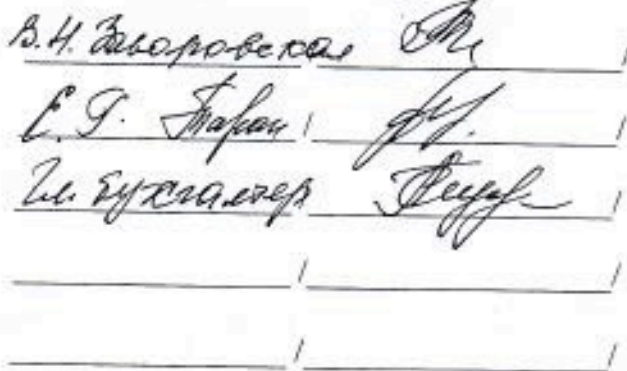 В.Н. Заворовская / /
Е.Г. Таран / /
Гл. бухгалтер / /
/ /
/ /